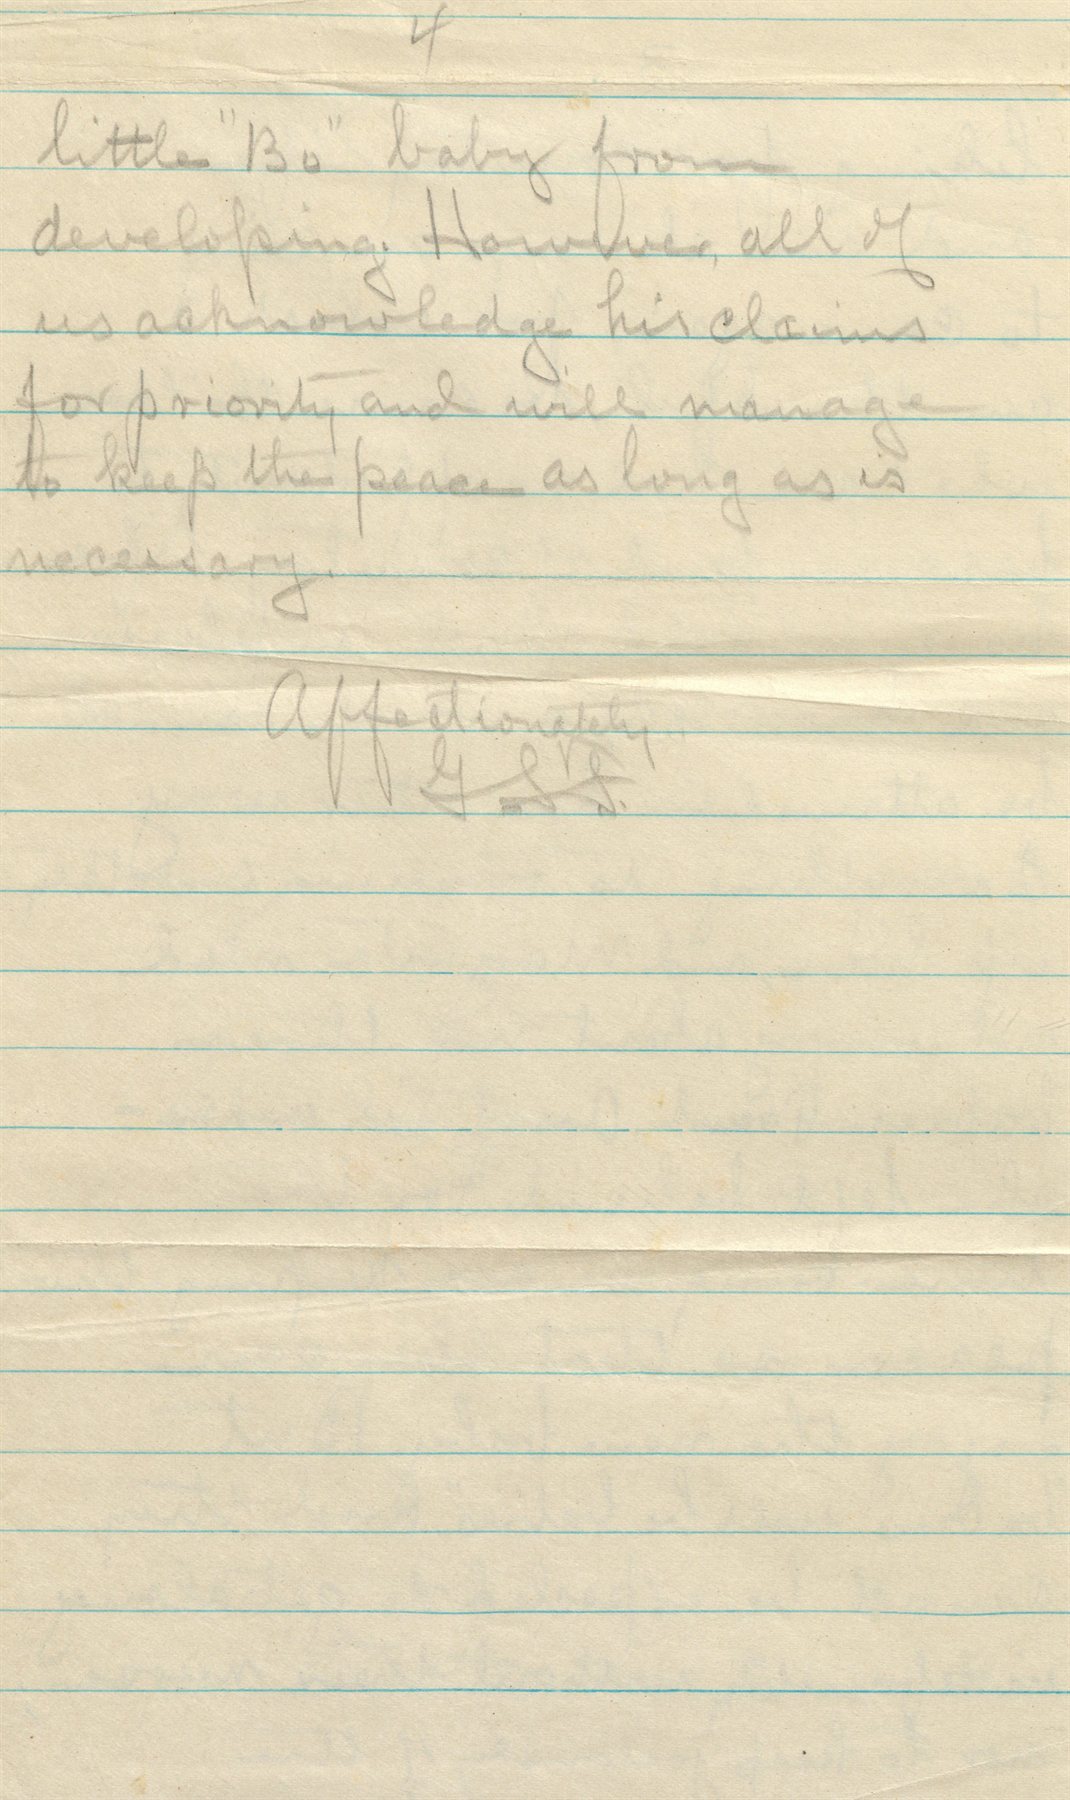 4
little "Bo" baby from
developing. However, all of
us acknowledge his claims
for priority and will manage
to keep the peace as long as is
necessary.
Affectionately